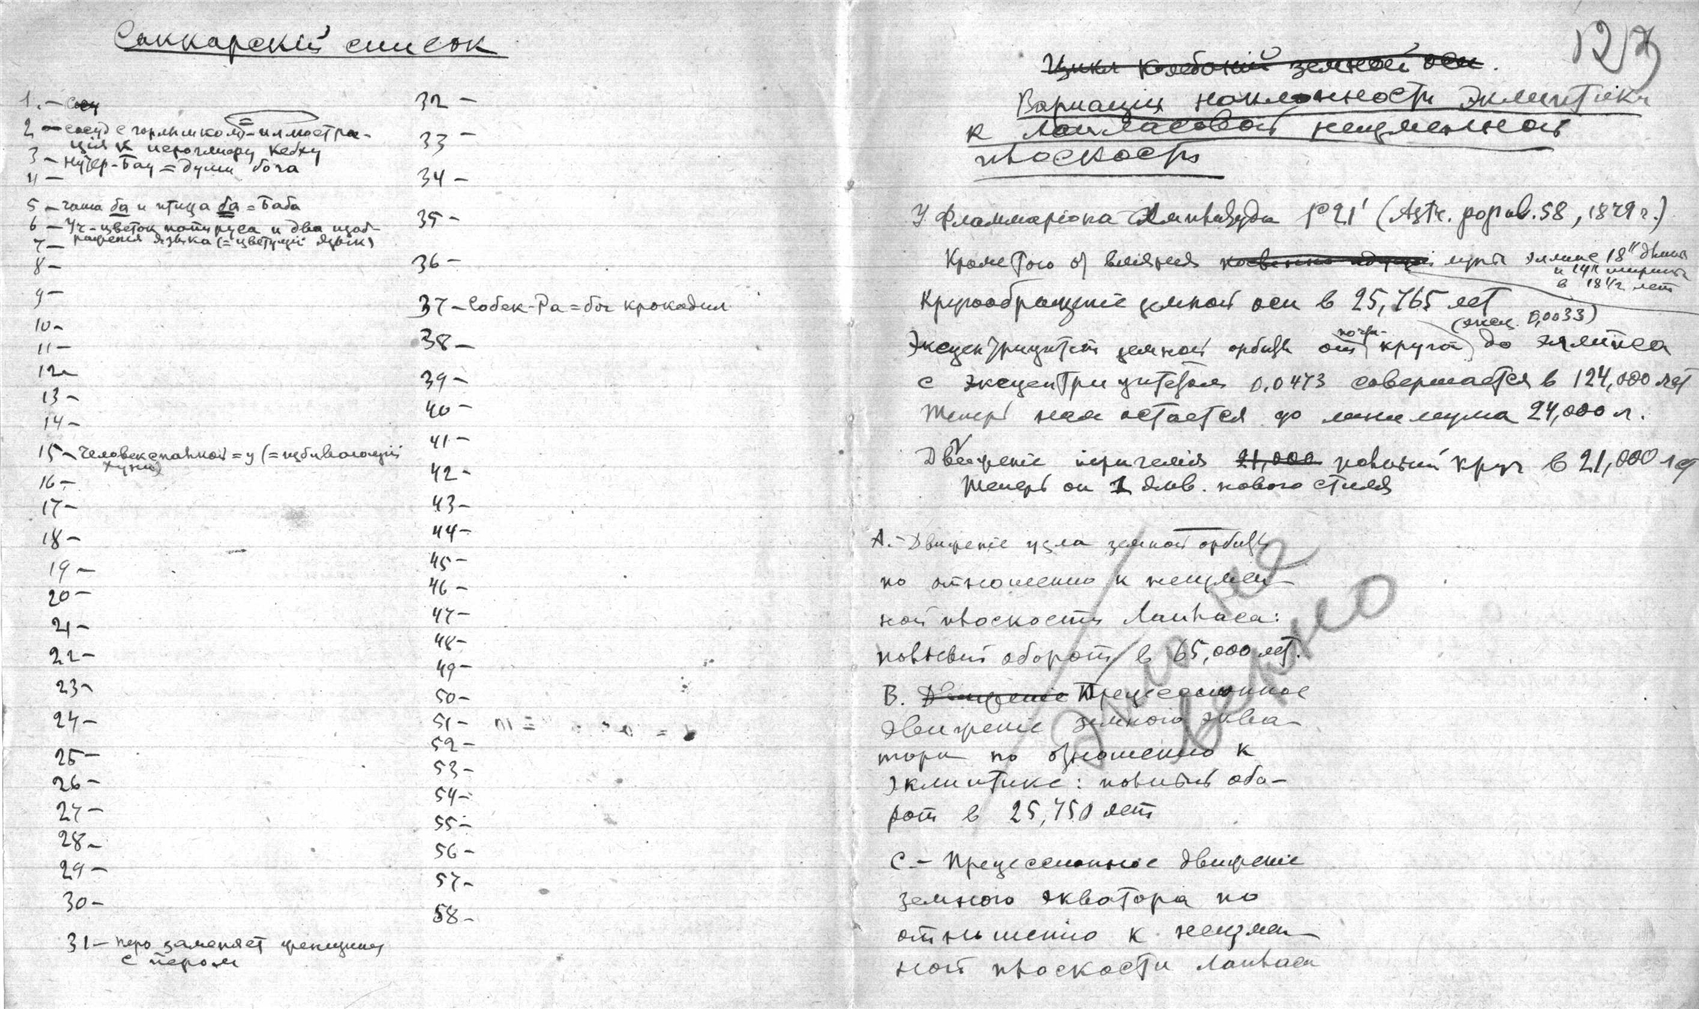 Саккарскій список
1. –
2 – сосуд с горлышком = иллюстра-
ція к іероглифу Кебху
3 – Нутер-Бау = души бога
4 –
5 – чаша ба и птица ба = Баба
6 – Уч – цветок папируса и два изоб-
ражения языка (= цветущій язык)
7 –
8 –
9 –
10 –
11 –
12 –
13 –
14 –
15 – Человек с палкой = у (= избивающій
16 –
17 –
18 –
19 –
20 –
21 –
22 –
23 –
24 –
25 –
26 –
27 –
28 –
29 –
30 –
31 – перо заменяет женщину
с пером
32 –
33
34 –
35 –
36 –
37 – Собек-Ра = бог крокодил
38 –
39 –
40 –
41 –
42 –
43 –
44 –
45 –
46 –
47 –
48 –
49 –
50 –
51 –
52 –
53 –
54 –
55 –
56 –
57 –
58 –
127
Цикл колебаній земной оси.
Варіація наклонности эклиптики
к лапласовой неизменной
плоскости
У Фламмаріона Амплитуда 1°21' (Astr. popul. 58, 1879 г.)
Кроме того от вліяния луны эллипс 18" длины
и 14" ширины
в 18 1/2 лет
Кругообращеніе земной оси в 25,765 лет
(эксц. 0,0033)
Эксцентрицитет земной орбиты от почти круга до эллипса
с эксцентрицитетом 0.0473 совершается в 124,000 лет
Теперь нам остается до минимума 24,000 л.
Движеніе перигелія 21,000 полный круг в 21,000 лет
Теперь он 1 янв. нового стиля
А. – Движеніе узла земной орбиты
по отношению к неизмен–
ной плоскости Лапласа:
полный оборот в 65,000 лет.
В. Движеніе Прецессионное
движеніе земного эква–
тора по отношению к
эклиптике: полный обо–
рот в 25,750 лет
С. – Прецессионное движеніе
земного экватора по
отношению к неизмен–
ной плоскости Лапласа
Это не
верно